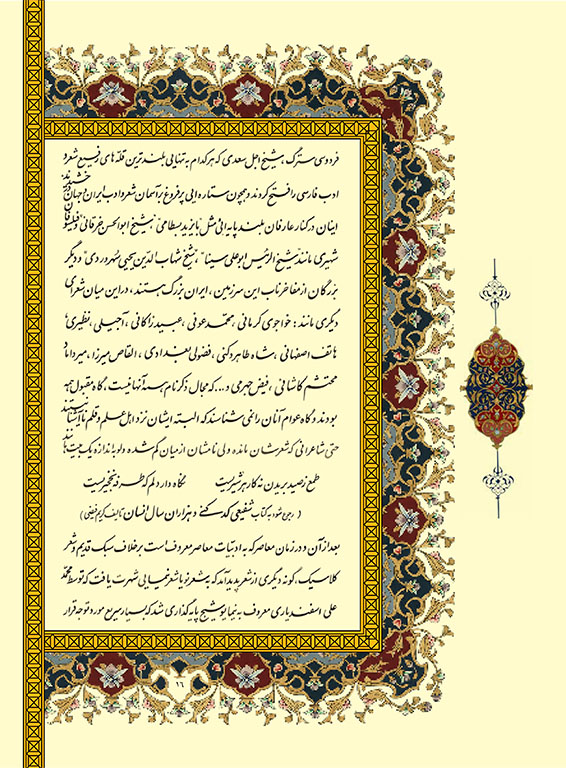 فردوسی سترگ، شیخ اجل سعدی که هر کدام به تنهایی بلندترین قله های رفیع شعر و
ادب فارسی را فتح کردند و همچون ستاره ایی پر فروغ بر آسمان شعر و ادب ایران و جهان درخشیدند
اینان در کنار عارفان بلند پایه ایی مثل "بایزید بسطامی"، "شیخ ابوالحسن خرقانی" و فیلسوفان
شهیری مانند "شیخ الرئیس ابوعلی سینا"، "شیخ شهاب الدین یحیی سُهروردی" و دیگر
بزرگان از مفاخر ناب این سرزمین، ایران بزرگ هستند، در این میان شعرای
دیگری مانند: خواجوی کرمانی، محمد عوفی، عبید زاکانی، آجیلی، نظیری،
هاتف اصفهانی، شاه طاهر دکنی، فضولی بغدادی، القاص میرزا، میرداماد
محتشم کاشانی، فیض ... و... که مجال ذکر نام همه آنها نیست، گاه مقبول همه
بودند و گاه عوام آنان را نمی شناسند که البته ایشان نزد اهل علم و قلم ناآشنا نیستند
حتی شاعرانی که شعرشان مانده ولی نامشان از میان گم شده ولو به اندازه یک بیت:
طمع ز صید بریدن نه کار هر شیریست نگاه دار دلم که طرفه نخجیریست
( رجوع شود به کتاب شفیعی کدکنی و هزاران سال انسان تالیف کریم فیضی )
بعد از آن و در زمان معاصر که به ادبیات معاصر معروف است بر خلاف سبک قدیم و شعر
کلاسیک، گونه دیگری از شعر پدید آمد که به شعر نو یا شعر نیمایی شهرت یافت که توسط محمد
علی اسفندیاری معروف به نیما یوشیج پایه گذاری شد که بسیار سریع مورد توجه قرار